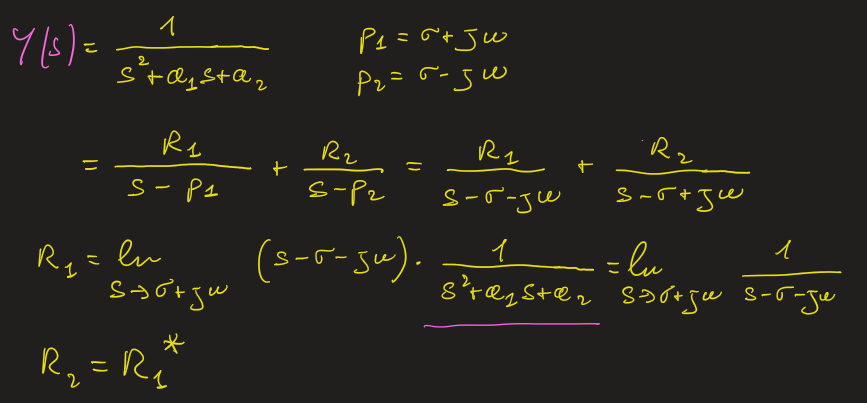 Y(s) = 1 / (s² + a₁s + a₂)    p₁ = σ + jω
p₂ = σ - jω
= R₁ / (s - p₁) + R₂ / (s - p₂) = R₁ / (s - σ - jω) + R₂ / (s - σ + jω)
R₁ = lim s→σ+jω (s - σ - jω) · 1 / (s² + a₁s + a₂) = lim s→σ+jω 1 / (s - σ - jω)
R₂ = R₁*